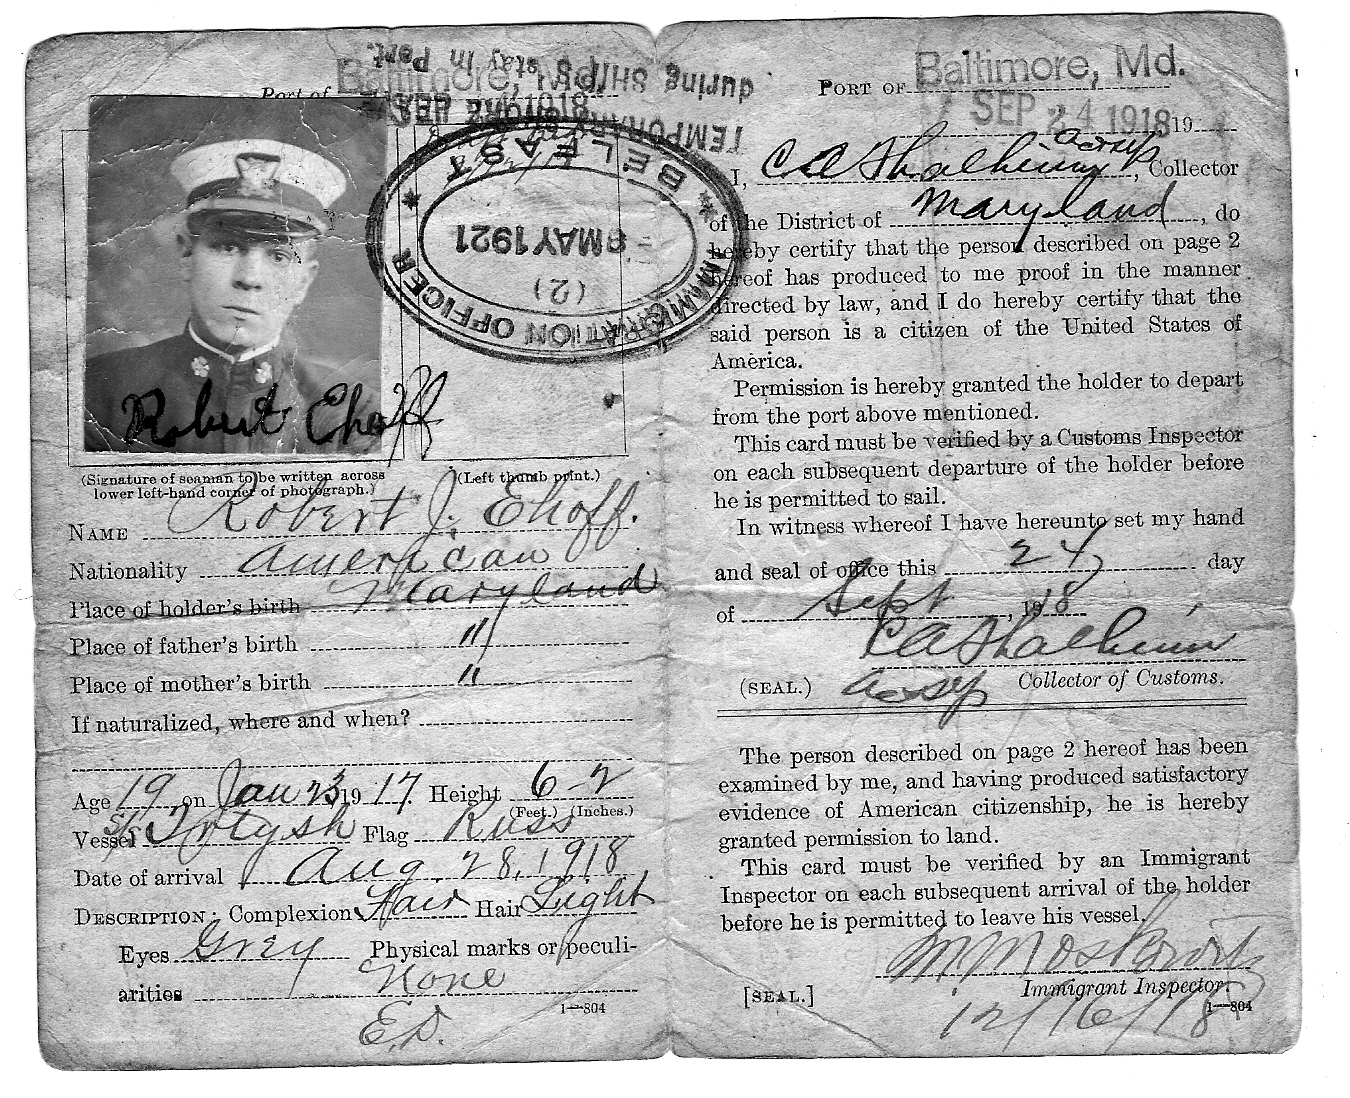 Port of Baltimore, Md.
1918
TEMPORARY
during SHIPS stay in Port.
IMMIGRATION OFFICER
* BELFAST *
MAY 1921
(2)
Robert Ehoff
(Signature of seaman to be written across
lower left-hand corner of photograph.)
(Left thumb print.)
NAME Robert J. Ehoff.
Nationality American
Place of holder's birth Maryland
Place of father's birth "
Place of mother's birth "
If naturalized, where and when?
Age 19 on Jan 23 1917. Height 6 2
(Feet.) (Inches.)
Vessel Flag Russ
Date of arrival Aug. 28, 1918
DESCRIPTION: Complexion Fair Hair Light
Eyes Grey Physical marks or peculi-
arities None
1—804
E.D.
PORT OF Baltimore, Md.
SEP 24 1918 19
I, , Collector
of the District of Maryland, do
hereby certify that the person described on page 2
hereof has produced to me proof in the manner
directed by law, and I do hereby certify that the
said person is a citizen of the United States of
America.
Permission is hereby granted the holder to depart
from the port above mentioned.
This card must be verified by a Customs Inspector
on each subsequent departure of the holder before
he is permitted to sail.
In witness whereof I have hereunto set my hand
and seal of office this 24 day
of Sept, 1918
(SEAL.) Collector of Customs.
The person described on page 2 hereof has been
examined by me, and having produced satisfactory
evidence of American citizenship, he is hereby
granted permission to land.
This card must be verified by an Immigrant
Inspector on each subsequent arrival of the holder
before he is permitted to leave his vessel.
[SEAL.] Immigrant Inspector.
12/16/18
1—804